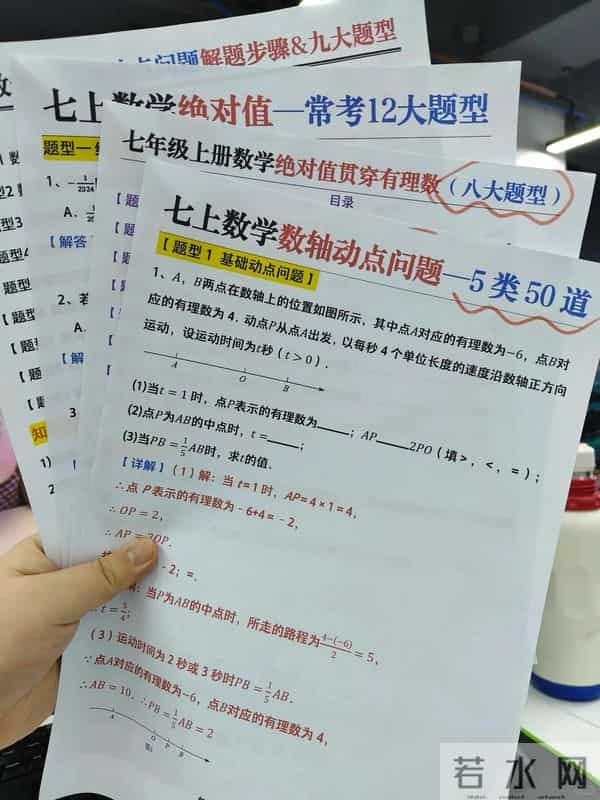 点问题解题步骤&九大题型
七上数学绝对值—常考12大题型
题型一
七年级上册数学绝对值贯穿有理数（八大题型）
目录
七上数学数轴动点问题—5类50道
【题型1 基础动点问题】
1、A，B两点在数轴上的位置如图所示，其中点A对应的有理数为-6，点B对
应的有理数为4．动点P从点A出发，以每秒4个单位长度的速度沿数轴正方向
运动，设运动时间为t秒（t>0）．
A O B
(1)当t=1时，点P表示的有理数为____；AP____2PO（填>，<，=）；
(2)点P为AB的中点时，t=____；
(3)当PB=1/5AB时，求t的值．
【详解】（1）解：当t=1时，AP=4×1=4，
∴点P表示的有理数为-6+4=-2，
∴OP=2，
∴AP=2OP．
-2；=．
：当P为AB的中点时，所走的路程为(4-(-6))/2=5，
t=5/4；
（3）运动时间为2秒或3秒时PB=1/5AB．
∵点A对应的有理数为-6，点B对应的有理数为4，
∴AB=10．∴PB=1/5AB=2
A O P B
【解答
【解
若水网